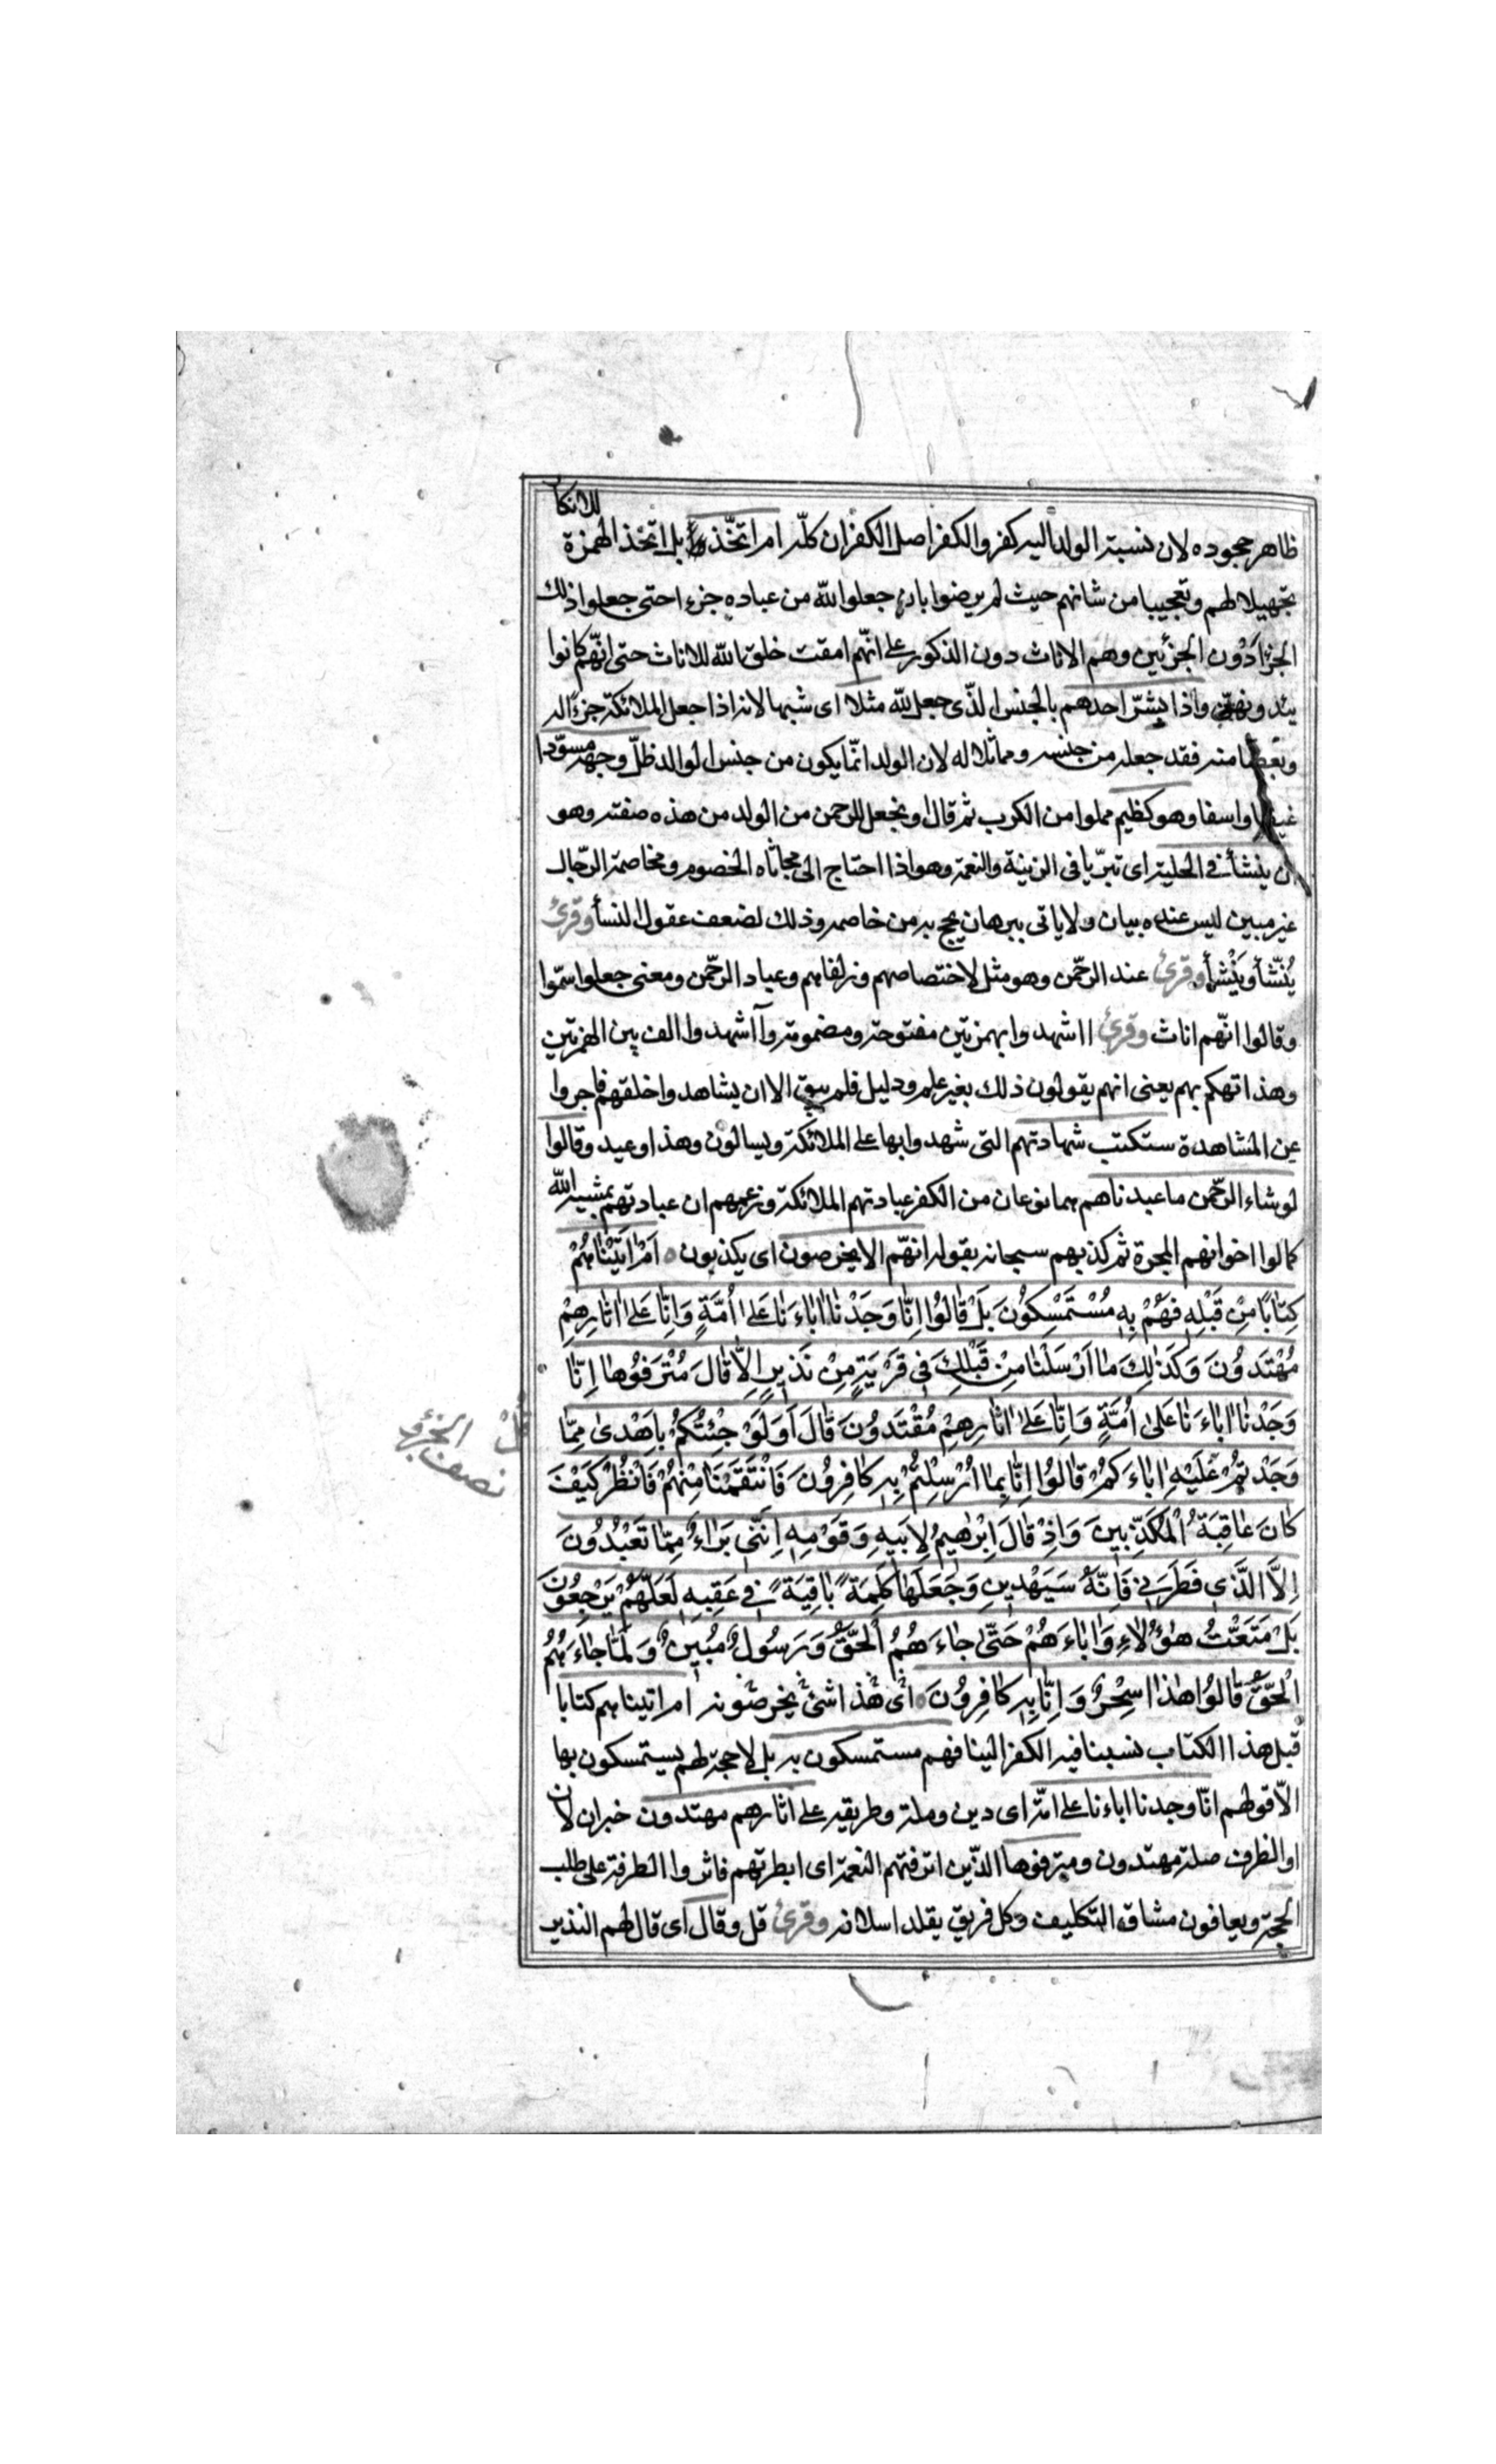 للانكا
ظاهر جحوده لان نسبة الولد اليه كفر والكفر اصل الكفران كله ام اتخذ بل اتخذ الهمزة
تجهيلا لهم وتعجيبا من شانهم حيث لم يرضوا بان جعلوا لله من عباده جزءا حتى جعلوا ذلك
الجزأ دون الجزئين وهم الاناث دون الذكور على انهم امقت خلق الله للاناث حتى انهم كانوا
يئدونهن واذا بشر احدهم بالجنس الذى جعل لله مثلا اى شبها لانه اذا جعل الملائكة جزءا له
وبعضا منه فقد جعله من جنسه ومماثلا له لان الولد انما يكون من جنس الوالد ظل وجهه مسودا
غيظا واسفا وهو كظيم مملوا من الكرب ثم قال او يجعل للرحمن من الولد من هذه صفته وهو
ان ينشأ فى الحلية اى تبريا فى الزينة والنعمة وهو اذا احتاج الى مجاثاه الخصوم ومخاصمة الرجال
غير مبين ليس عنده بيان ولا ياتى ببرهان يحج به من خاصمه وذلك لضعف عقول النسأ وقرئ
يُنَشّأ ويَنْشأ وقرئ عند الرحمن وهو مثل لاختصاصهم وزلفاهم وعباد الرحمن ومعنى جعلوا سموا
وقالوا انهم اناث وقرئ ااشهدوا بهمزتين مفتوحة ومضمومة وآاشهدوا الف بين الهمزتين
وهذا تهكم بهم يعنى انهم يقولون ذلك بغير علم ودليل فلم يبق الا ان يشاهدوا خلقهم فاجروا
عن المشاهدة ستكتب شهادتهم التى شهدوا بها على الملائكة ويسالون وهذا وعيد وقالوا
لو شاء الرحمن ما عبدناهم هما نوعان من الكفر عبادتهم الملائكة وزعمهم ان عبادتهم بمشية الله
كما لوا اخوانهم المجبرة ثم كذبهم سبحانه بقوله انهم الا يخرصون اى يكذبون اَمْ اٰتَيْنٰاهُمْ
كِتٰابًا مِنْ قَبْلِهِ فَهُمْ بِهِ مُسْتَمْسِكُونَ بَلْ قٰالُوا اِنّٰا وَجَدْنٰا اٰبٰاءَنٰا عَلىٰ اُمَّةٍ وَاِنّٰا عَلىٰ اٰثٰارِهِمْ
مُهْتَدُونَ وَكَذٰلِكَ مٰا اَرْسَلْنٰا مِنْ قَبْلِكَ فِى قَرْيَةٍ مِنْ نَذِيرٍ اِلّٰا قٰالَ مُتْرَفُوهٰا اِنّٰا
وَجَدْنٰا اٰبٰاءَنٰا عَلىٰ اُمَّةٍ وَاِنّٰا عَلىٰ اٰثٰارِهِمْ مُقْتَدُونَ قٰالَ اَوَلَوْ جِئْتُكُمْ بِاَهْدىٰ مِمّٰا
وَجَدْتُمْ عَلَيْهِ اٰبٰاءَكُمْ قٰالُوا اِنّٰا بِمٰا اُرْسِلْتُمْ بِهِ كٰافِرُونَ فَانْتَقَمْنٰا مِنْهُمْ فَانْظُرْ كَيْفَ
كٰانَ عٰاقِبَةُ الْمُكَذِّبِينَ وَاِذْ قٰالَ اِبْرٰهِيمُ لِاَبِيهِ وَقَوْمِهِ اِنَّنِى بَرٰاءٌ مِمّٰا تَعْبُدُونَ
اِلَّا الَّذِى فَطَرَنِى فَاِنَّهُ سَيَهْدِينِ وَجَعَلَهٰا كَلِمَةً بٰاقِيَةً فِى عَقِبِهِ لَعَلَّهُمْ يَرْجِعُونَ
بَلْ مَتَّعْتُ هٰؤُلٰاءِ وَاٰبٰاءَهُمْ حَتّٰى جٰاءَهُمُ الْحَقُّ وَرَسُولٌ مُبِينٌ وَلَمّٰا جٰاءَهُمُ
الْحَقُّ قٰالُوا هٰذٰا سِحْرٌ وَاِنّٰا بِهِ كٰافِرُونَ اى هذا شئ يخرصونه ام اتيناهم كتابا
قبل هذا الكتاب نسبنا فيه الكفر الينا فهم مستمسكون به بل لا حجة لهم يستمسكون بها
الا قولهم انا وجدنا اباءنا على امة اى دين وملة وطريقه على اثارهم مهتدون خبران لان
او الظرف صلة مهتدون ومترفوها الذين اترفتهم النعمة اى ابطرتهم فاثروا الطرفة على طلب
الحجة ويعافون مشاق التكليف وكل فريق يقلد اسلافه وقرئ قل وقال اى قال لهم النذير
نصف الجزء